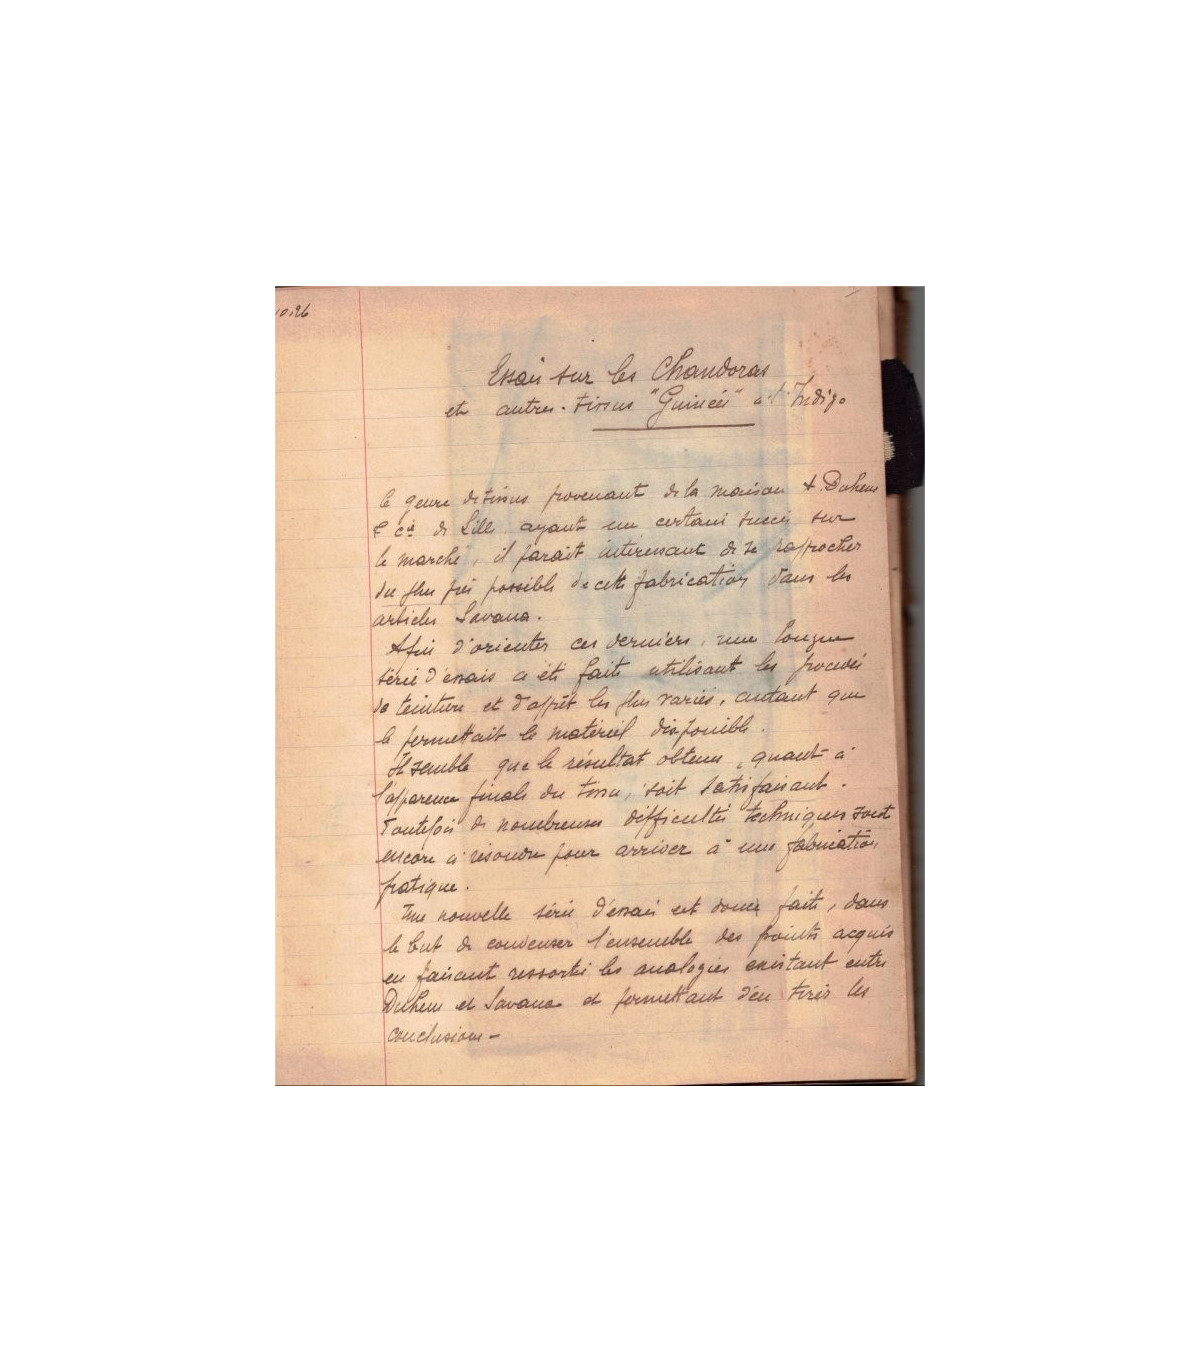 10.26
Essais sur les Chandoras
et autres tissus "Guinées" à l'Indigo
Ce genre de tissus provenant de la maison A. Duhem
& Cie de Lille ayant un certain succès sur
le marché, il parait intéressant de se rapprocher
du plus près possible de cette fabrication dans les
articles Savana.
Afin d'orienter ces derniers, une longue
série d'essais a été faite utilisant les procédés
de teinture et d'apprêt les plus variés, autant que
le permettait le matériel disponible.
Il semble que le résultat obtenu, quant à
l'apparence finale du tissu, soit satisfaisant.
Toutefois de nombreuses difficultés techniques sont
encore à résoudre pour arriver à une fabrication
pratique.
Une nouvelle série d'essais est donc faite, dans
le but de condenser l'ensemble des points acquis
en faisant ressortir les analogies existant entre
Duhem et Savana et permettant d'en tirer les
conclusions -